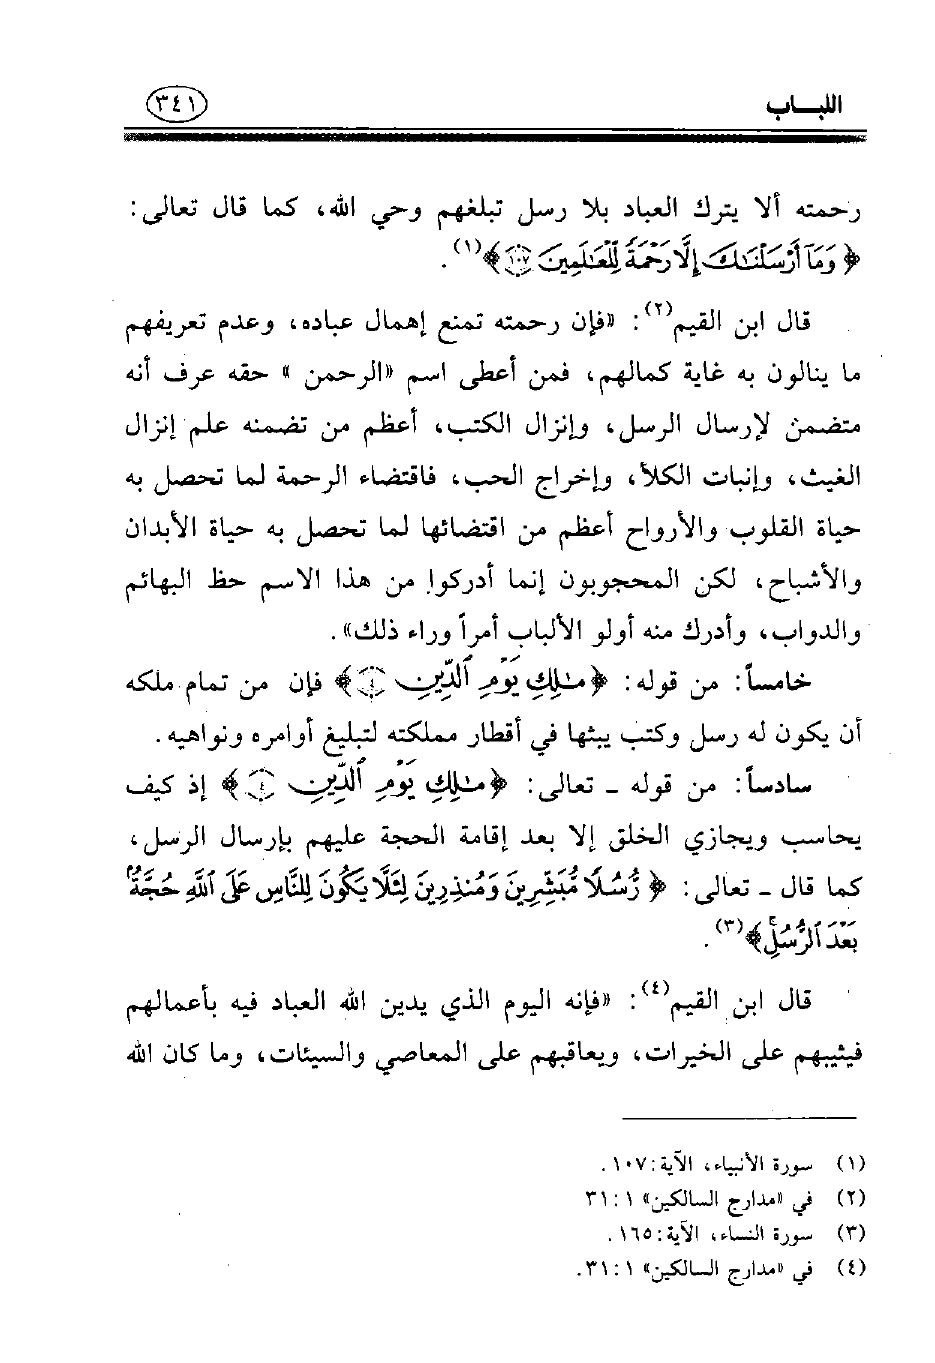 اللبـــاب
٣٤١
رحمته ألا يترك العباد بلا رسل تبلغهم وحي الله، كما قال تعالى:
﴿ وَمَآ أَرْسَلْنَٰكَ إِلَّا رَحْمَةً لِّلْعَٰلَمِينَ ١٠٧ ﴾(١).
قال ابن القيم(٢): «فإن رحمته تمنع إهمال عباده، وعدم تعريفهم
ما ينالون به غاية كمالهم، فمن أعطى اسم «الرحمن » حقه عرف أنه
متضمن لإرسال الرسل، وإنزال الكتب، أعظم من تضمنه علم إنزال
الغيث، وإنبات الكلأ، وإخراج الحب، فاقتضاء الرحمة لما تحصل به
حياة القلوب والأرواح أعظم من اقتضائها لما تحصل به حياة الأبدان
والأشباح، لكن المحجوبون إنما أدركوا من هذا الاسم حظ البهائم
والدواب، وأدرك منه أولو الألباب أمراً وراء ذلك».
خامساً: من قوله: ﴿ مَٰلِكِ يَوْمِ ٱلدِّينِ ٤ ﴾ فإن من تمام ملكه
أن يكون له رسل وكتب يبثها في أقطار مملكته لتبليغ أوامره ونواهيه.
سادساً: من قوله ـ تعالى: ﴿ مَٰلِكِ يَوْمِ ٱلدِّينِ ٤ ﴾ إذ كيف
يحاسب ويجازي الخلق إلا بعد إقامة الحجة عليهم بإرسال الرسل،
كما قال ـ تعالى: ﴿ رُّسُلًا مُّبَشِّرِينَ وَمُنذِرِينَ لِئَلَّا يَكُونَ لِلنَّاسِ عَلَى ٱللَّهِ حُجَّةٌۢ
بَعْدَ ٱلرُّسُلِ ﴾(٣).
قال ابن القيم(٤): «فإنه اليوم الذي يدين الله العباد فيه بأعمالهم
فيثيبهم على الخيرات، ويعاقبهم على المعاصي والسيئات، وما كان الله
(١) سورة الأنبياء، الآية: ١٠٧.
(٢) في «مدارج السالكين» ١: ٣١
(٣) سورة النساء، الآية: ١٦٥.
(٤) في «مدارج السالكين» ١: ٣١.